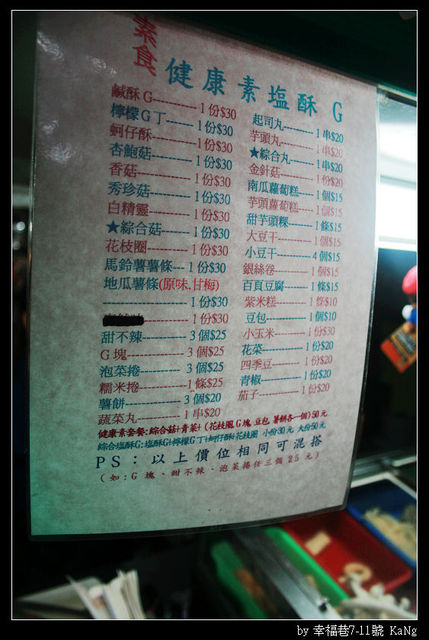 素食
健康素塩酥 G
鹹酥G----------1份$30
檸檬G丁------1份$30
蚵仔酥--------1份$30
杏鮑菇--------1份$30
香菇-----------1份$30
秀珍菇--------1份$30
白精靈--------1份$30
★綜合菇------1份$30
花枝圈--------1份$30
馬鈴薯薯條---1份$30
地瓜薯條(原味.甘梅)
------------------1份$30
------1份$30
甜不辣---------3個$25
G塊------------3個$25
泡菜捲--------3個$25
糯米捲--------1條$25
薯餅-----------3個$20
蔬菜丸--------1串$20
起司丸--------1串$20
芋頭丸--------1串$20
★綜合丸------1串$20
金針菇--------1份$20
南瓜蘿蔔糕----1個$15
芋頭蘿蔔糕----1個$15
甜芋頭粿------1條$15
大豆干--------1個$15
小豆干--------4個$15
銀絲卷--------1個$15
百頁豆腐------1條$15
紫米糕--------1條$10
豆包-----------1個$10
小玉米--------1份$30
花菜-----------1份$20
四季豆--------1份$20
青椒-----------1份$20
茄子-----------1份$20
健康素套餐:綜合菇+青菜+(花枝圈.G塊.豆包.薯餅各一個)50元
綜合塩酥G:塩酥G+檸檬G丁+蚵仔酥+花枝圈 小份30元 大份50元
PS:以上價位相同可混搭
(如:G塊、甜不辣、泡菜捲任三個25元)
by 幸福巷7-11號 KaNg